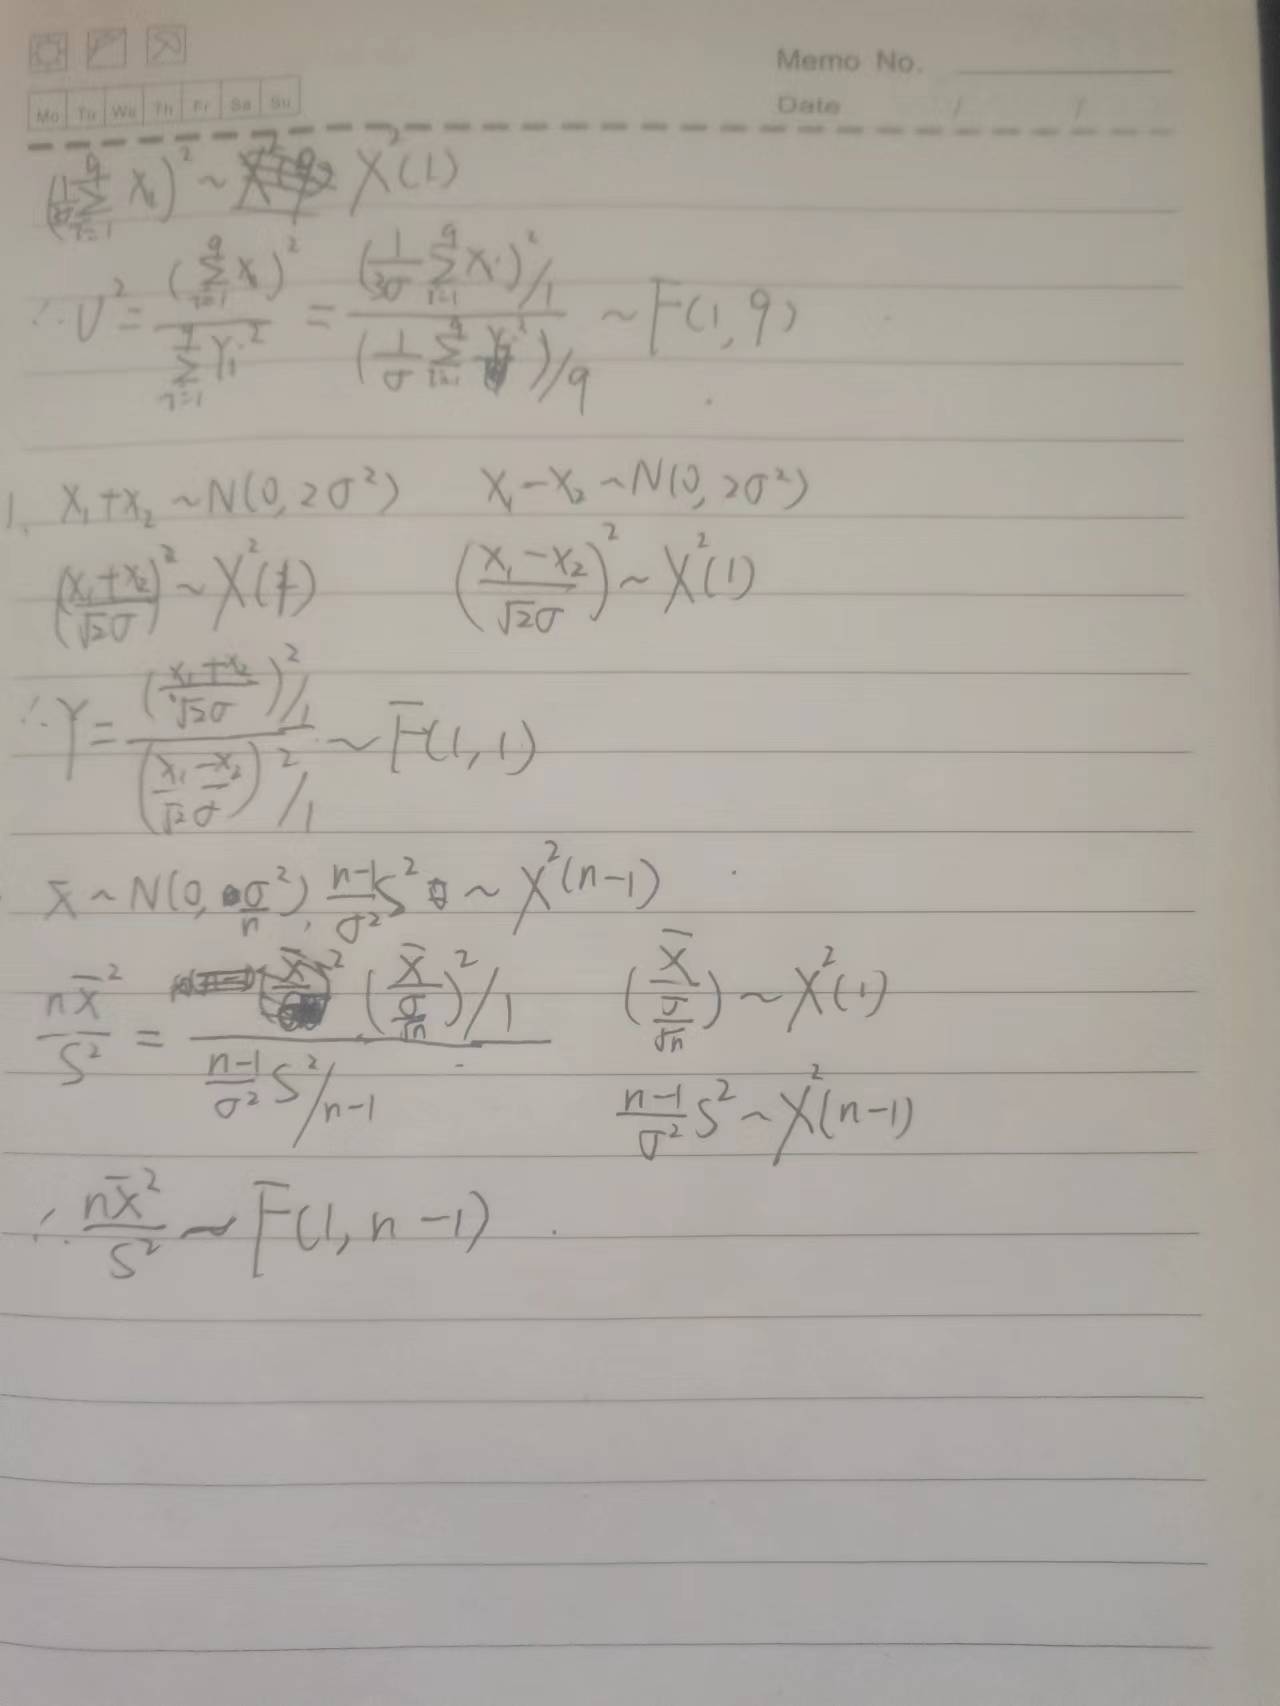 Memo No.
Mo Tu We Th Fr Sa Su
Date / /
(1/3σ ∑_{i=1}^{9} X_i)² ~ χ²(1)
∴ U² = (∑_{i=1}^{9} X_i)² / ∑_{i=1}^{9} Y_i² = (1/3σ ∑_{i=1}^{9} X_i)²/1 / (1/σ ∑_{i=1}^{9} Y_i²)/9 ~ F(1, 9)
1. X₁+X₂ ~ N(0, 2σ²) X₁-X₂ ~ N(0, 2σ²)
(X₁+X₂ / √2σ)² ~ χ²(1) (X₁-X₂ / √2σ)² ~ χ²(1)
∴ Y = (X₁+X₂ / √2σ)²/1 / (X₁-X₂ / √2σ)²/1 ~ F(1, 1)
X̄ ~ N(0, σ²/n), n-1/σ² S² ~ χ²(n-1)
nX̄²/S² = (X̄ / σ/√n)²/1 / n-1/σ² S²/n-1 (X̄ / σ/√n) ~ χ²(1)
n-1/σ² S² ~ χ²(n-1)
∴ nX̄²/S² ~ F(1, n-1)